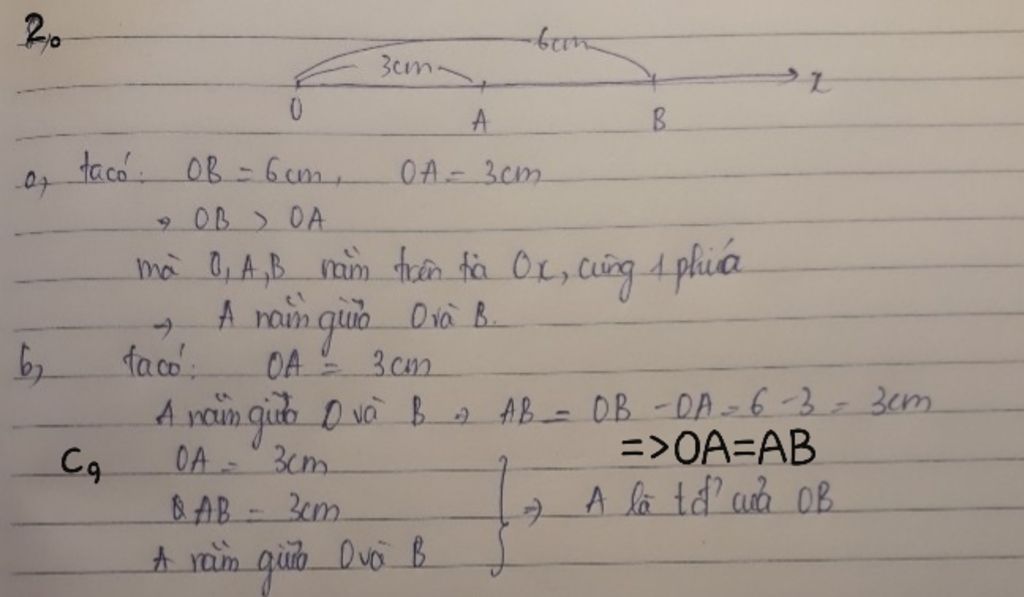 2,
6cm
3cm
O A B x
a, ta có: OB = 6cm, OA = 3cm
→ OB > OA
mà O, A, B nằm trên tia Ox, cùng 1 phía
→ A nằm giữa O và B.
b, ta có: OA = 3cm
A nằm giữa O và B → AB = OB - OA = 6 - 3 = 3cm
=>OA=AB
C, OA = 3cm
& AB = 3cm
A nằm giữa O và B
⇒ A là tđ' của OB